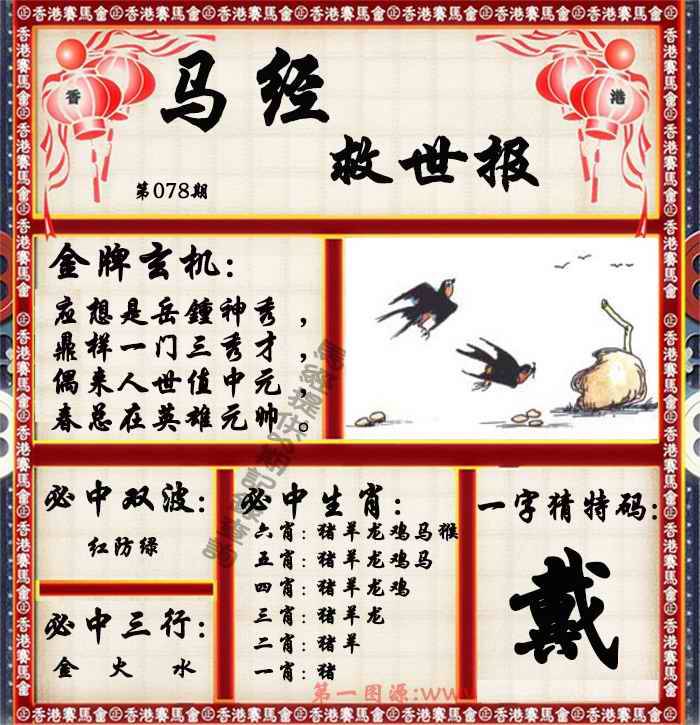 香港賽馬會
香
港
马经
救世报
第078期
金牌玄机:
应想是岳鐘神秀，
鼎样一门三秀才，
偶来人世值中元，
春总在英雄元帅。
必中双波:
红防绿
必中三行:
金 火 水
必中生肖:
六肖:猪羊龙鸡马猴
五肖:猪羊龙鸡马
四肖:猪羊龙鸡
三肖:猪羊龙
二肖:猪羊
一肖:猪
一字猜特码:
戴
第一图源:www